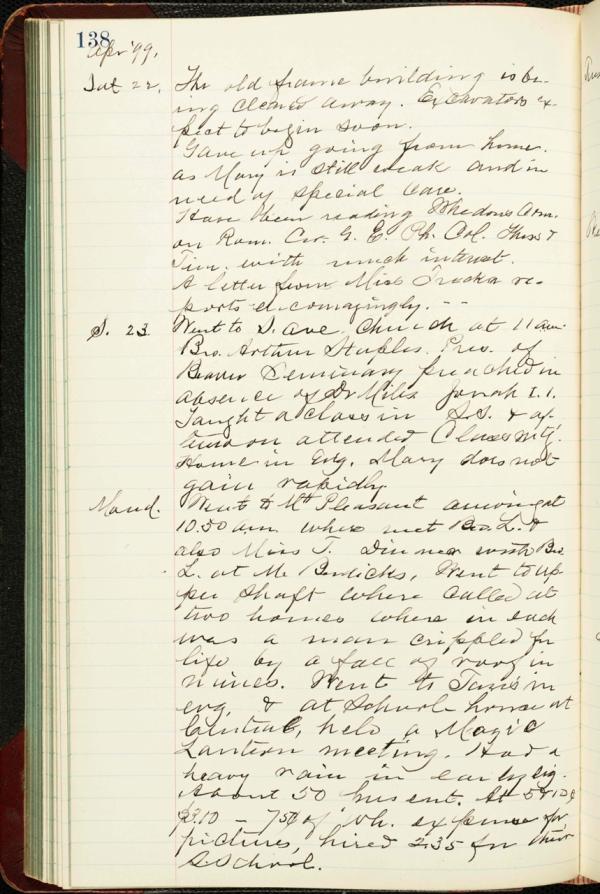 138
Apr '99.
Sat 22. The old frame building is be-
ing cleaned away. Excavators ex-
pect to begin soon.
Gave up going from home.
as Mary is still weak and in
need of special care.
Have been reading Whedons Com.
on Rom. Cor. G. E. Ph. Col. Thess &
Tim. with much interest.
A letter from Miss re-
ports encouragingly. - -
S. 23. Went to S. Ave. Church at 11 am.
Bro. Arthur Staples. Pres. of
Beaver Seminary preached in
absence of Dr Miles Jonah I. 1.
Taught a class in S.S. & af-
ternoon attended Class mtg.
Home in Evg. Mary does not
gain rapidly.
Mond. Went to Mt Pleasant arriving at
10.50 a.m. where met Bro. L. &
also Miss T. Dinner with Bro
L. at Mc Went to Up-
per Shaft where called at
two homes where in each
was a man crippled for
life by a fall of roof in
mines. Went to in
evg. & at School house at
held a Magic
Lantern meeting. Had a
heavy rain in early eig.
About 50 present. At 5 & 10¢
$3.10 - 75¢ of wh. expense for
pictures, hired 2.35 for their
S School.